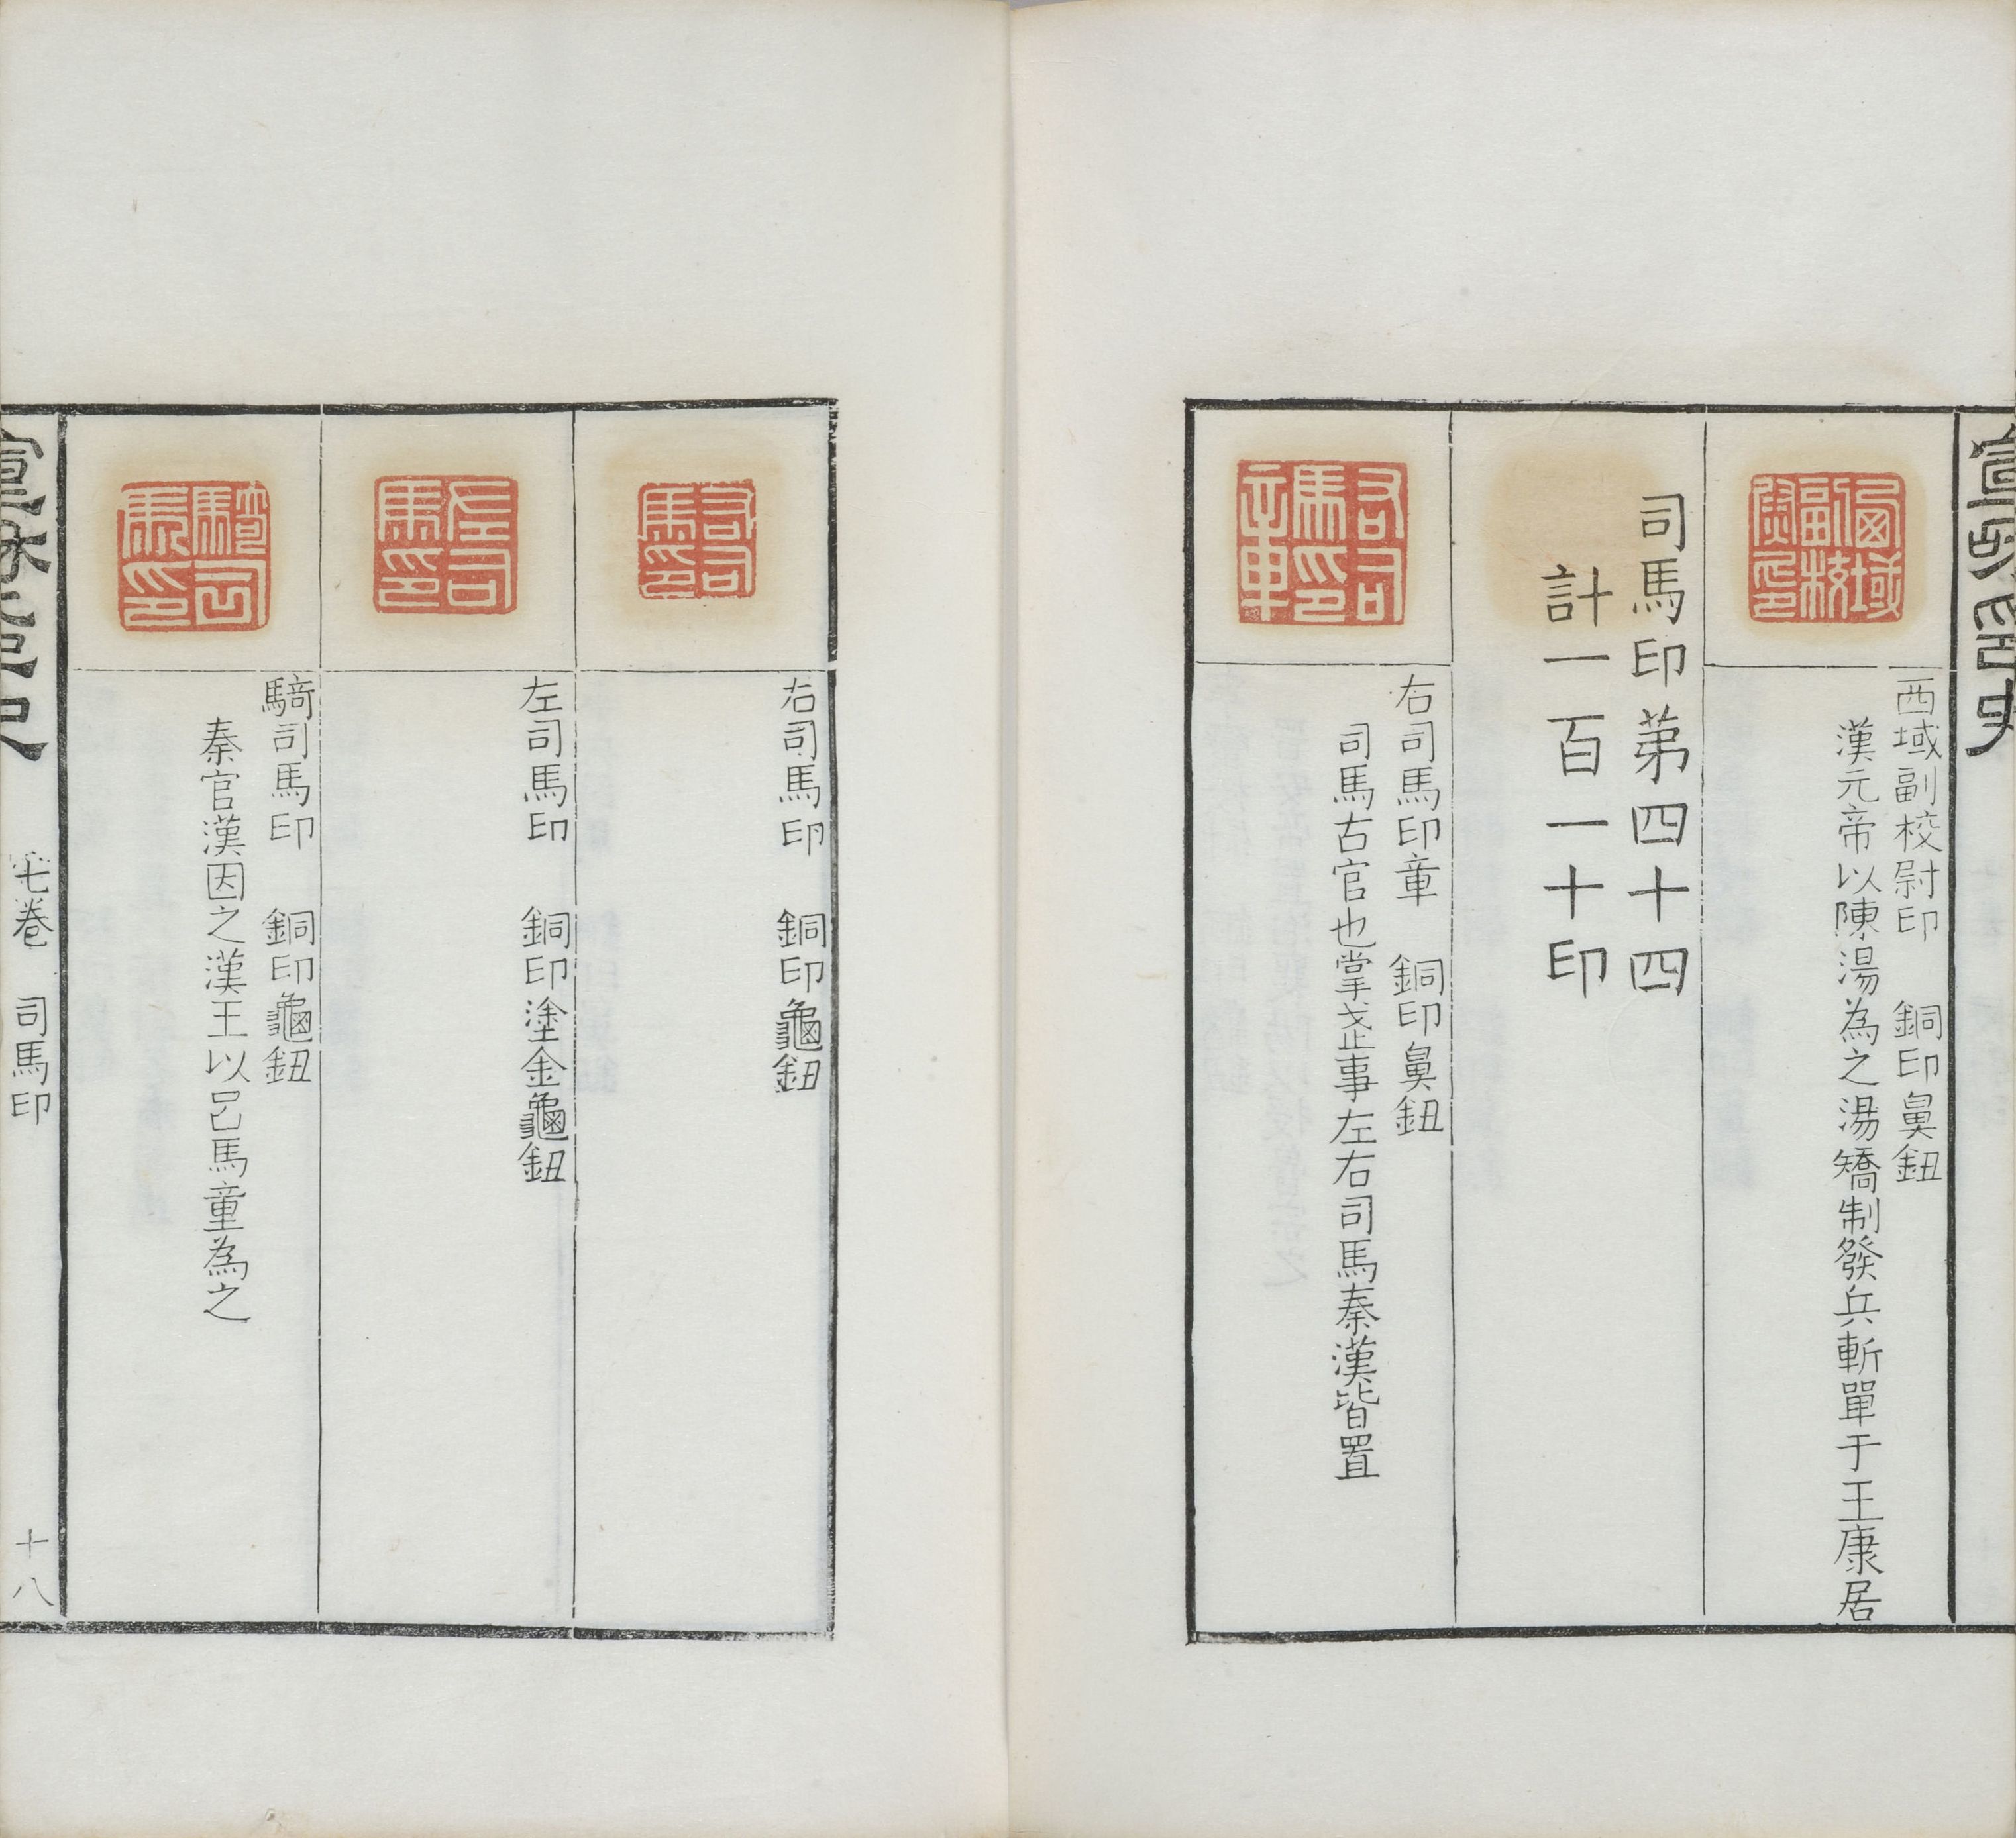 西域副校尉印
西域副校尉印　銅印鼻鈕
漢元帝以陳湯為之湯矯制發兵斬單于王康居
司馬印苐四十四
計一百一十印
右司馬印章
右司馬印章　銅印鼻鈕
司馬古官也掌武事左右司馬秦漢皆置
右司馬印
右司馬印　銅印龜鈕
左司馬印
左司馬印　銅印塗金龜鈕
騎司馬印
騎司馬印　銅印龜鈕
秦官漢因之漢王以呂馬童為之
七卷　司馬印
十八